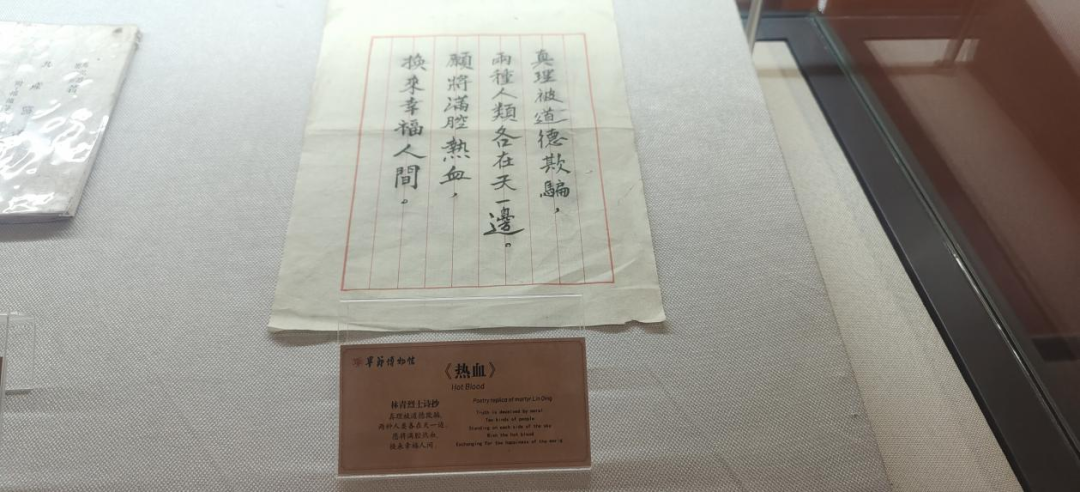 真理被道德欺騙，
兩種人類各在天一邊。
願將滿腔熱血，
換來幸福人間。
《热血》
Hot Blood
林青烈士诗抄
真理被道德欺骗，
两种人类各在天一边。
愿将满腔热血，
换来幸福人间。
Poetry replica of martyr Lin Qing
Truth is deceived by moral
Two kinds of people
Standing on each side of the sky
With the hot blood
Exchanging for the happiness of the